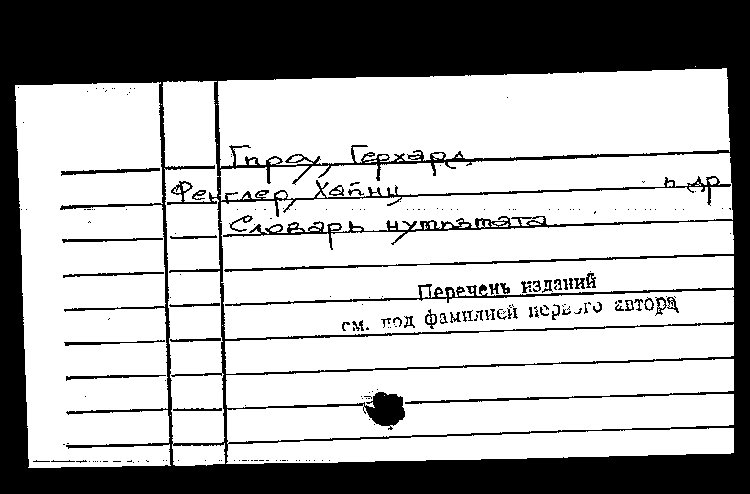 Гироу, Герхард
Фенглер, Хайнц и др
Словарь нумизмата
Перечень изданий
см. под фамилией первого автора